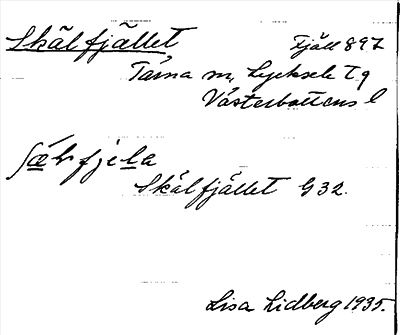 Skälfjället Fjäll 897
Tärna sn, Lycksele Tg
Västerbottens l
ʃæ̀lfjela
Skälfjället G 32.
Lisa Lidberg 1935.